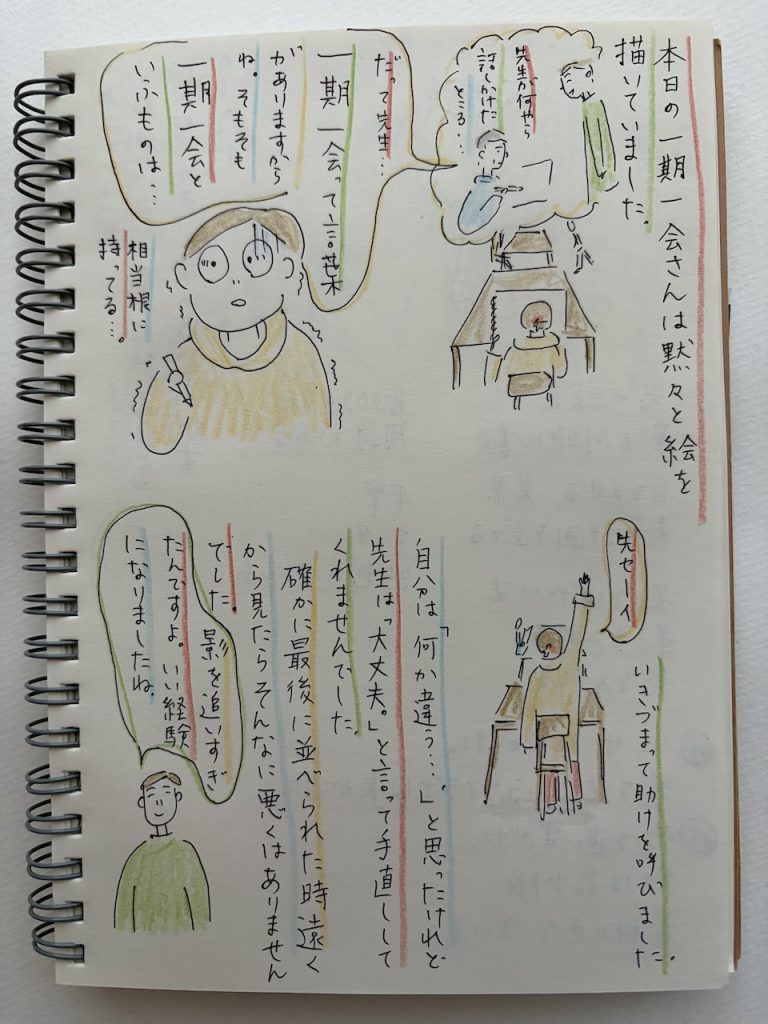 本日の一期一会さんは黙々と絵を
描いていました。
先生が何やら
話しかけた
ところ…
だって先生…
一期一会って言葉
がありますから
ね。そもそも
一期一会と
いふものは…
相当根に
持ってる…。
先セーイ
いきづまって助けを呼びました。
自分は「何か違う…。」と思ったけれど
先生は「大丈夫。」と言って手直しして
くれませんでした。
確かに最後に並べられた時遠く
から見たらそんなに悪くはありません
でした。
影を追いすぎ
たんですよ。いい経験
になりましたね。